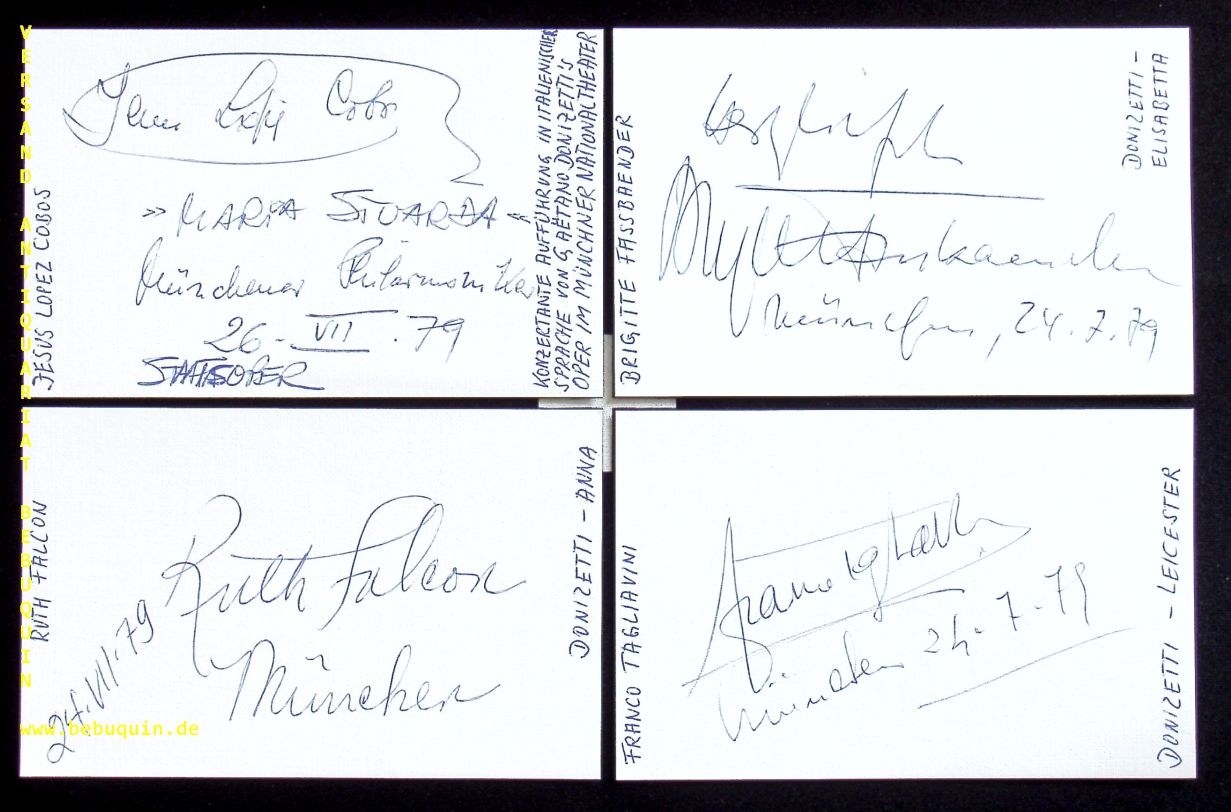 VERSAND ANTIQUARIAT BEBUQUIN
www.bebuquin.de
JESUS LOPEZ COBOS
» MARIA STUARDA «
Münchener Philarmoniker
26 - VII . 79
STAATSOPER
KONZERTANTE AUFFÜHRUNG IN ITALIENISCHER
SPRACHE VON GAËTANO DONIZETTI'S
OPER IM MÜNCHNER NATIONALTHEATER
BRIGITTE FASSBAENDER
herzlichst
München, 24.7.79
DONIZETTI -
ELISABETTA
RUTH FALCON
Ruth Falcon
München
24.VII.79
DONIZETTI - ANNA
FRANCO TAGLIAVINI
München 24.7.79
DONIZETTI - LEICESTER